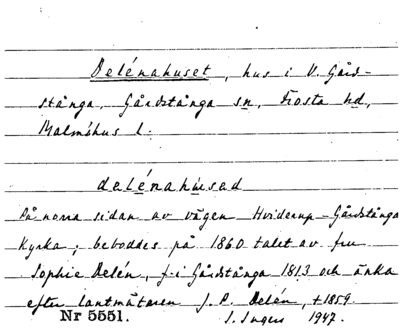 Delénahuset, hus i V. Gård-
stånga, Gårdstånga sn, Frosta hd,
Malmöhus l.
delénahusad
På norra sidan av vägen Hviderup-Gårdstånga
Kyrka; beboddes på 1860 talet av fru
Sophie Delén, f. i Gårdstånga 1813 och änka
efter lantmätaren J. P. Delén, +1859.
Nr 5551. I. Ingers 1947.